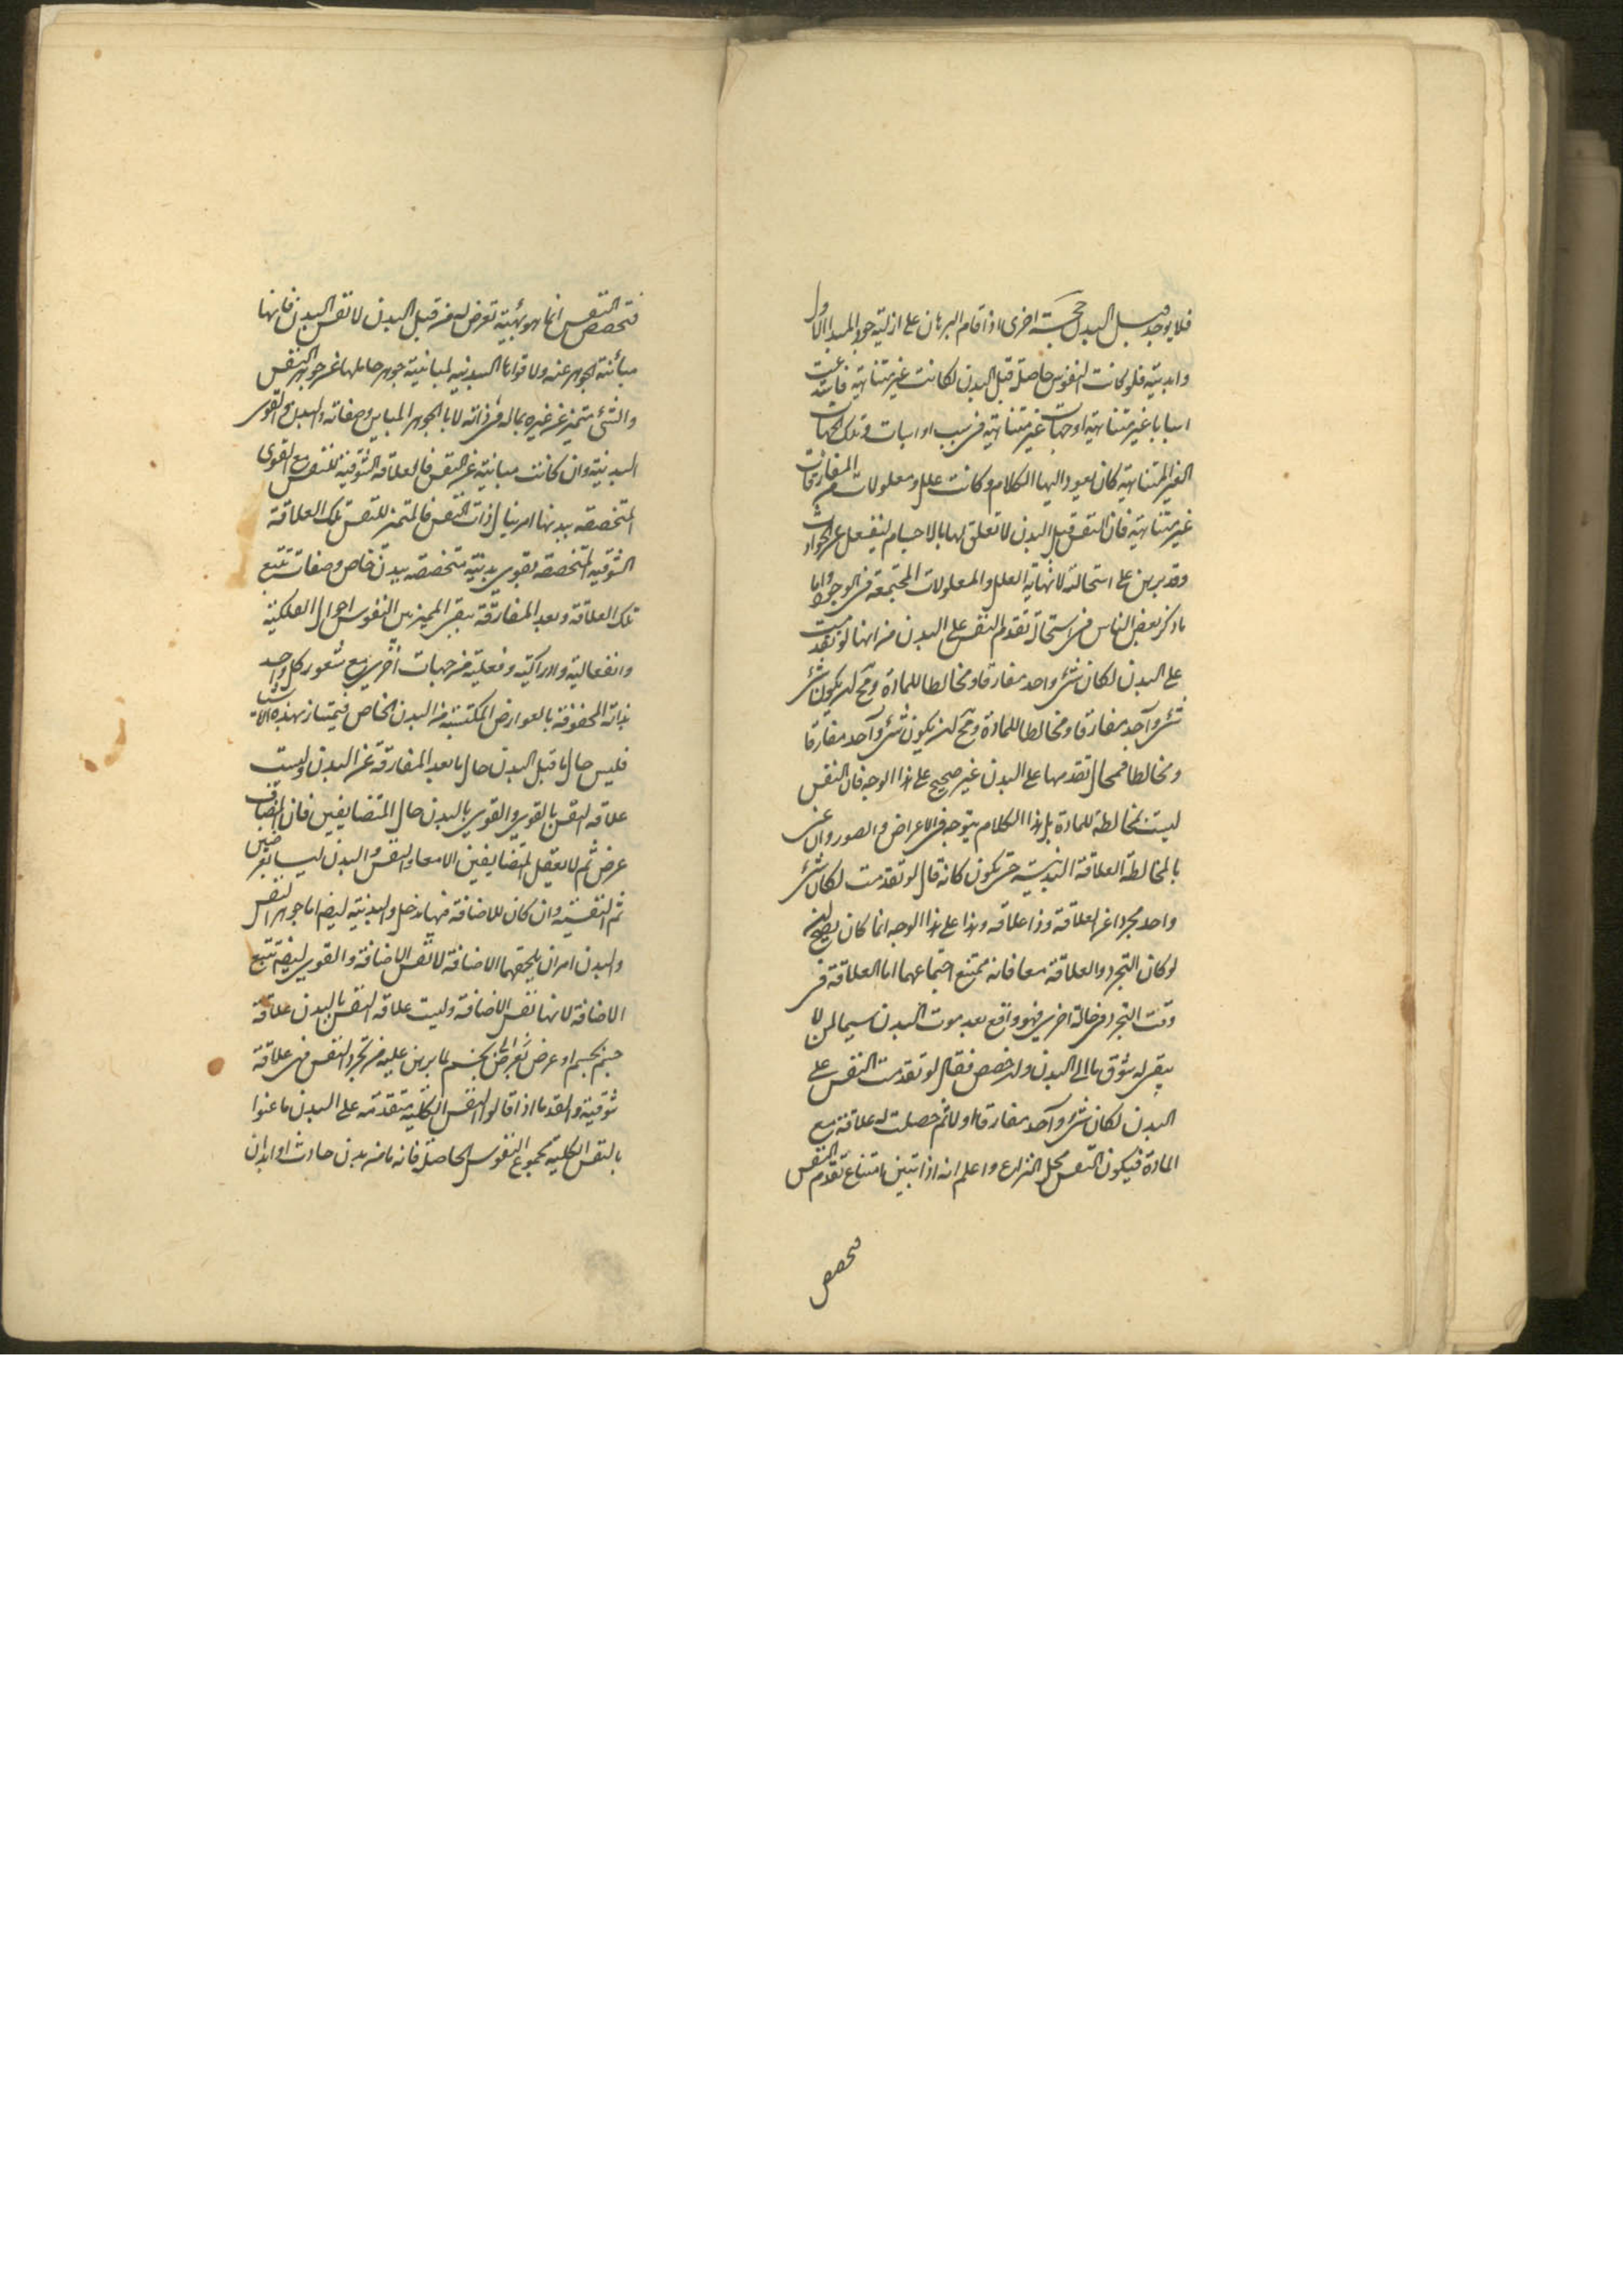 فلا يوجد قبل البدن حجة اخرى اذا قام البرهان على ازلية جود المبدا الاول
وابديته فلو كانت النفوس حاصلة قبل البدن لكانت غير متناهية فاستدعت
اسبابا غير متناهية او جهات غير متناهية في سبب او اسباب وتلك الجهات
الغير المتناهية كان يعود اليها الكلام وكانت علل ومعلولات من المفارقات
غير متناهية فان النفس قبل البدن لا تعلق لها بالاجسام لينفعل عن الحوادث
وقد برهن على استحالة لا نهاية العلل والمعلولات المجتمعة في الوجود واما
ما ذكر بعض الناس في استحالة تقدم النفس على البدن من انها لو تقدمت
على البدن لكان شئ واحد مفارقا ومخالطا للمادة ومح ان يكون شئ
شئ واحد مفارقا ومخالطا للمادة ومح ان يكون شئ واحد مفارقا
ومخالطا فمحال تقدمها على البدن غير صحيح على هذا الوجه فان النفس
ليست مخالطة للمادة بل هذا الكلام يتوجه في الاعراض والصور وان عنى
بالمخالطة العلاقة البدنية حتى يكون كانه قال لو تقدمت لكان شئ
واحد مجردا عن العلاقة وذا علاقة وهذا على هذا الوجه انما كان يصح
لو كان التجرد والعلاقة معا فانه يمتنع اجتماعهما اما العلاقة في
وقت التجرد في حالة اخرى فهو واقع بعد موت البدن سيما لمن لا
يبقى له شوق ما الى البدن وان خصص فقال لو تقدمت النفس على
البدن لكان شئ واحد مفارقا اولا ثم حصلت له علاقة مع
المادة فيكون النفس محل النزاع واعلم انه اذا تبين امتناع تقدم النفس
فتخصص
فتخصص النفس انما هو بهيئة تعرض له من قبل البدن لا نفس البدن فانها
مبائنة الجوهر عنه ولا قواها البدنية لمباينة جوهر حاملها عن جوهر النفس
والشئ متميز عن غيره بما له في ذاته لا بالجوهر المباين وصفاته والبدن والقوى
البدنية وان كانت مباينة عن النفس فالعلاقة الشوقية للنفس مع القوى
المتخصصة ببدنها امر ينال ذات النفس فالمتميز للنفس تلك العلاقة
الشوقية المتخصصة بقوى بدنية متخصصة ببدن خاص وصفات تتبع
تلك العلاقة وبعد المفارقة يبقى المميز بين النفوس احوال الفلكية
وانفعالية وادراكية وفعلية من جهات اخرى مع شعور كل واحد
بذاته المحفوفة بالعوارض المكتسبة من البدن الخاص فيمتاز بهذه الاشياء
فليس حال ما قبل البدن حال ما بعد المفارقة عن البدن وليست
علاقة النفس بالقوى والقوى بالبدن حال المتضايفين فان المضاف
عرض ثم لا يعقل المتضايفين الا معا والنفس والبدن ليسا بعرضين
ثم النفسية وان كان للاضافة فيها مدخل والبدنية ايضا اما جوهر النفس
والبدن امران يلحقهما الاضافة لا نفس الاضافة والقوى ايضا تتبع
الاضافة لا انها نفس الاضافة وليست علاقة النفس بالبدن علاقة
جسم بجسم او عرض بعرض بجسم لما برهن عليه من تجرد النفس فهي علاقة
شوقية والقدما اذا قالوا النفس الكلية متقدمة على البدن ما عنوا
بالنفس الكلية مجموع النفوس الحاصلة فانه ما من بدن حادث او ابدان